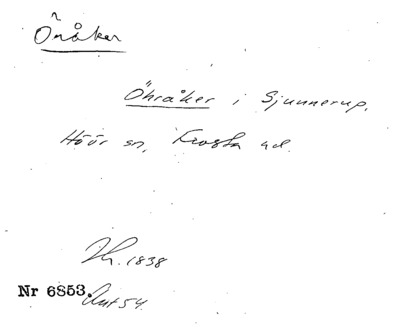 Önåker
Öhråker i Sjunnerup.
Höör sn, Frosta hd.
1838
Nr 6853. Ant 54.